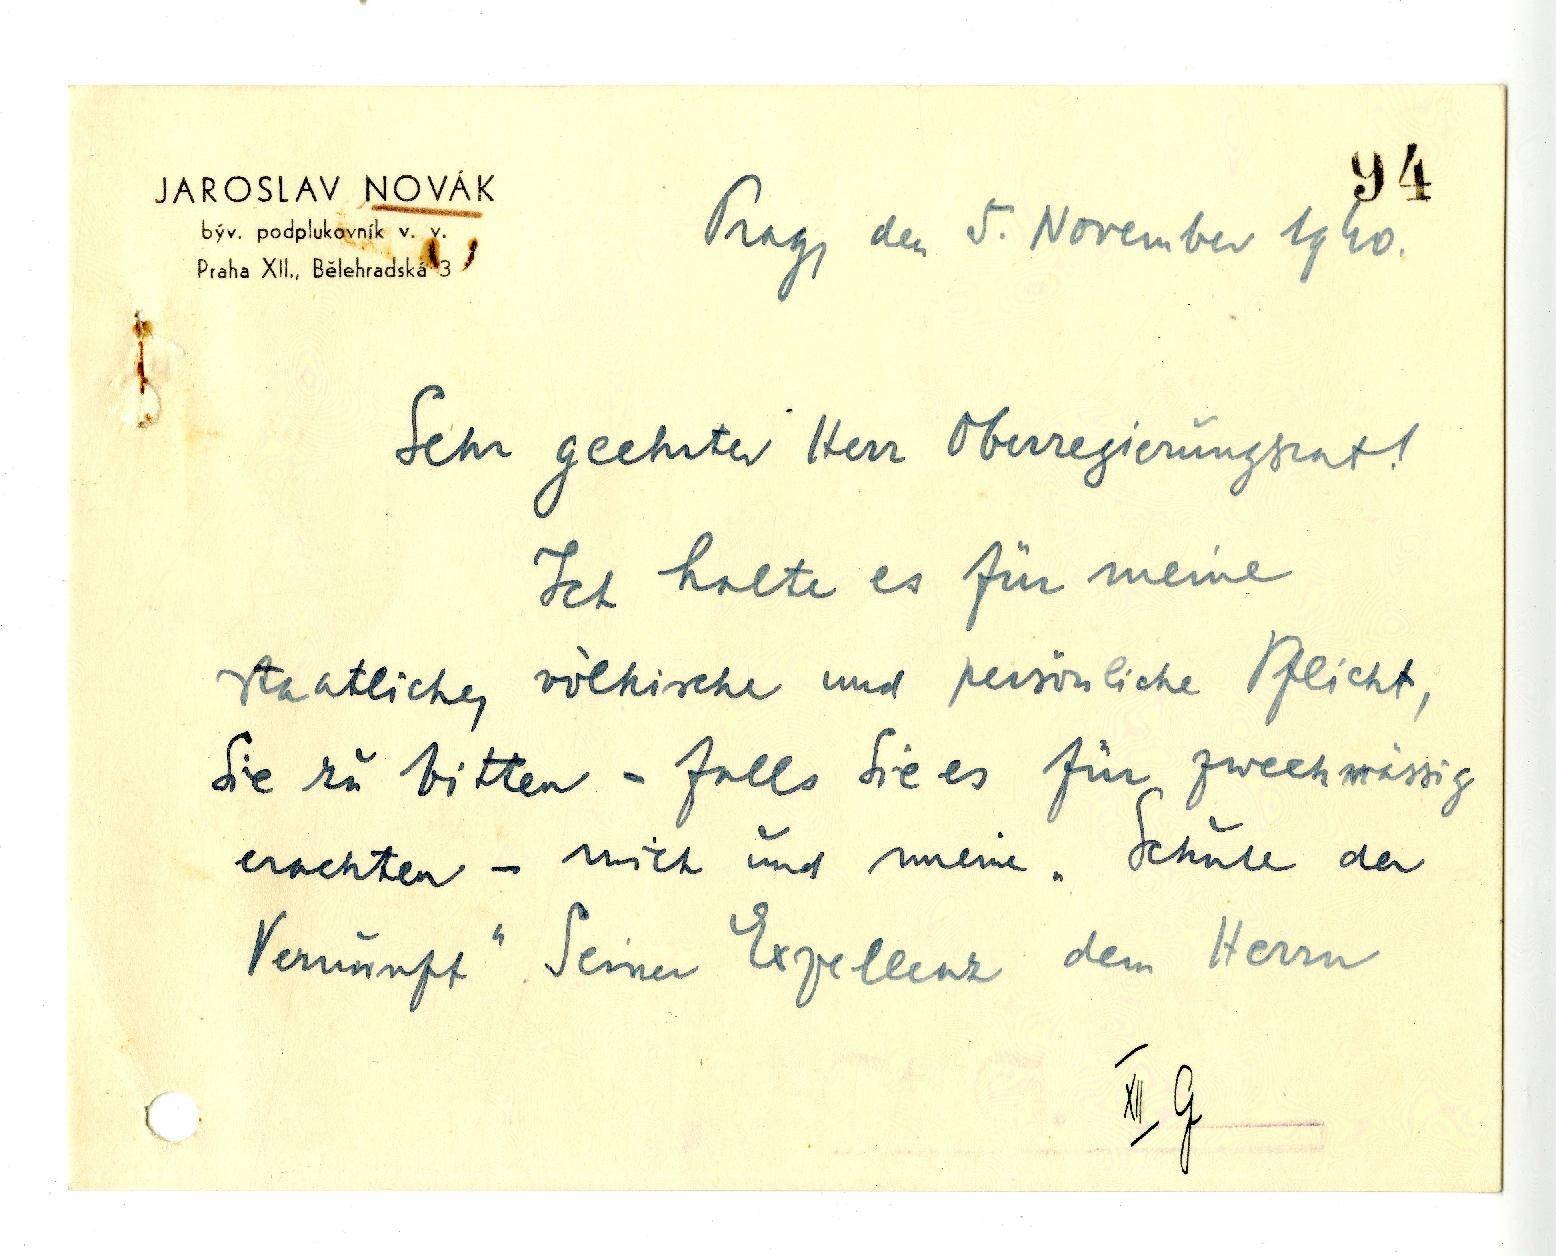 94
JAROSLAV NOVÁK
býv. podplukovník v. v.
Praha XII., Bělehradská 3
Prag, den 5. November 1940.
Sehr geehrter Herr Oberregierungsrat!
Ich halte es für meine
staatliche, völkische und persönliche Pflicht,
Sie zu bitten - falls Sie es für zweckmässig
erachten - mich und meine „Schule der
Vernunft" Seiner Exzellenz dem Herrn
XII G